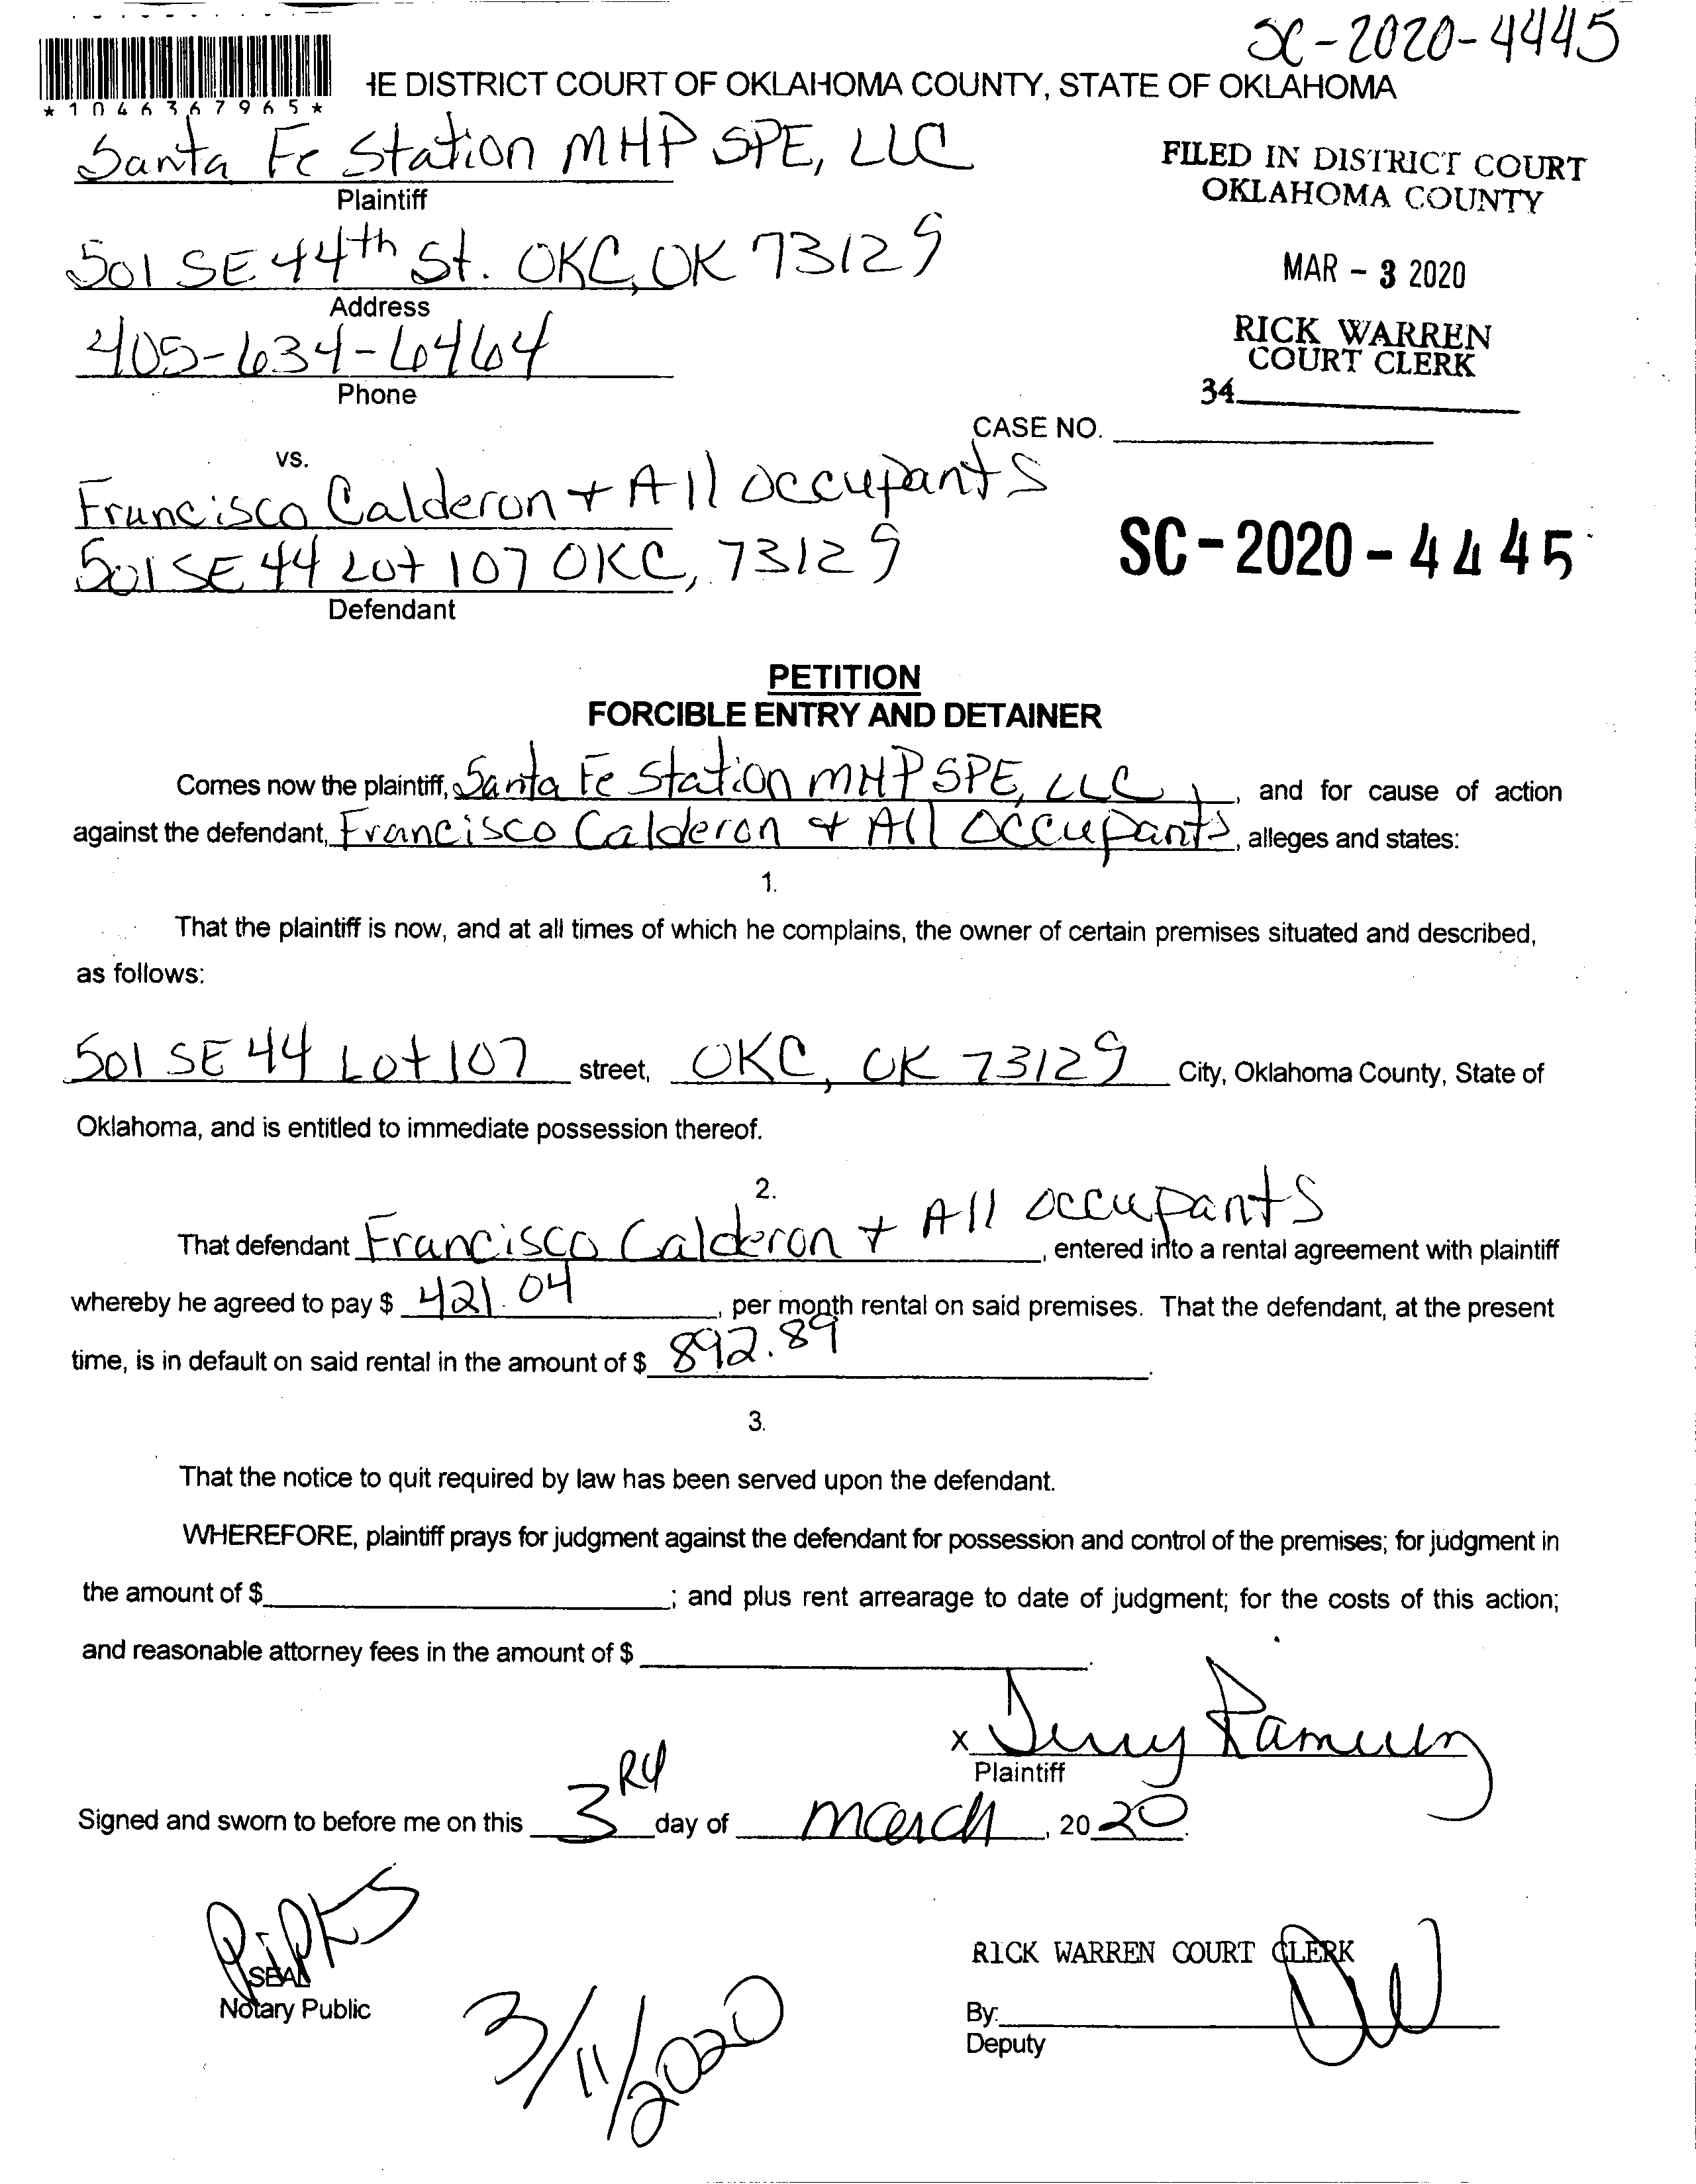 SC-2020-4445
*1046367965*
HE DISTRICT COURT OF OKLAHOMA COUNTY, STATE OF OKLAHOMA
Santa Fe Station MHP SPE, LLC
Plaintiff
FILED IN DISTRICT COURT
OKLAHOMA COUNTY
501 SE 44th St. OKC, OK 73129
Address
MAR - 3 2020
405-634-6464
Phone
RICK WARREN
COURT CLERK
34
CASE NO.
vs.
Francisco Calderon + All Occupants
501 SE 44 Lot 107 OKC, 73129
Defendant
SC-2020-4445
PETITION
FORCIBLE ENTRY AND DETAINER
Comes now the plaintiff, Santa Fe Station MHP SPE, LLC, and for cause of action
against the defendant, Francisco Calderon + All Occupants, alleges and states:
1.
That the plaintiff is now, and at all times of which he complains, the owner of certain premises situated and described,
as follows:
501 SE 44 Lot 107 street, OKC, OK 73129 City, Oklahoma County, State of
Oklahoma, and is entitled to immediate possession thereof.
2.
That defendant Francisco Calderon + All Occupants, entered into a rental agreement with plaintiff
whereby he agreed to pay $ 421.04, per month rental on said premises. That the defendant, at the present
time, is in default on said rental in the amount of $ 892.89.
3.
That the notice to quit required by law has been served upon the defendant.
WHEREFORE, plaintiff prays for judgment against the defendant for possession and control of the premises; for judgment in
the amount of $ ; and plus rent arrearage to date of judgment; for the costs of this action;
and reasonable attorney fees in the amount of $ .
x
Plaintiff
Signed and sworn to before me on this 3rd day of march, 2020.
SEAL
Notary Public
3/11/2020
RICK WARREN COURT CLERK
By:
Deputy